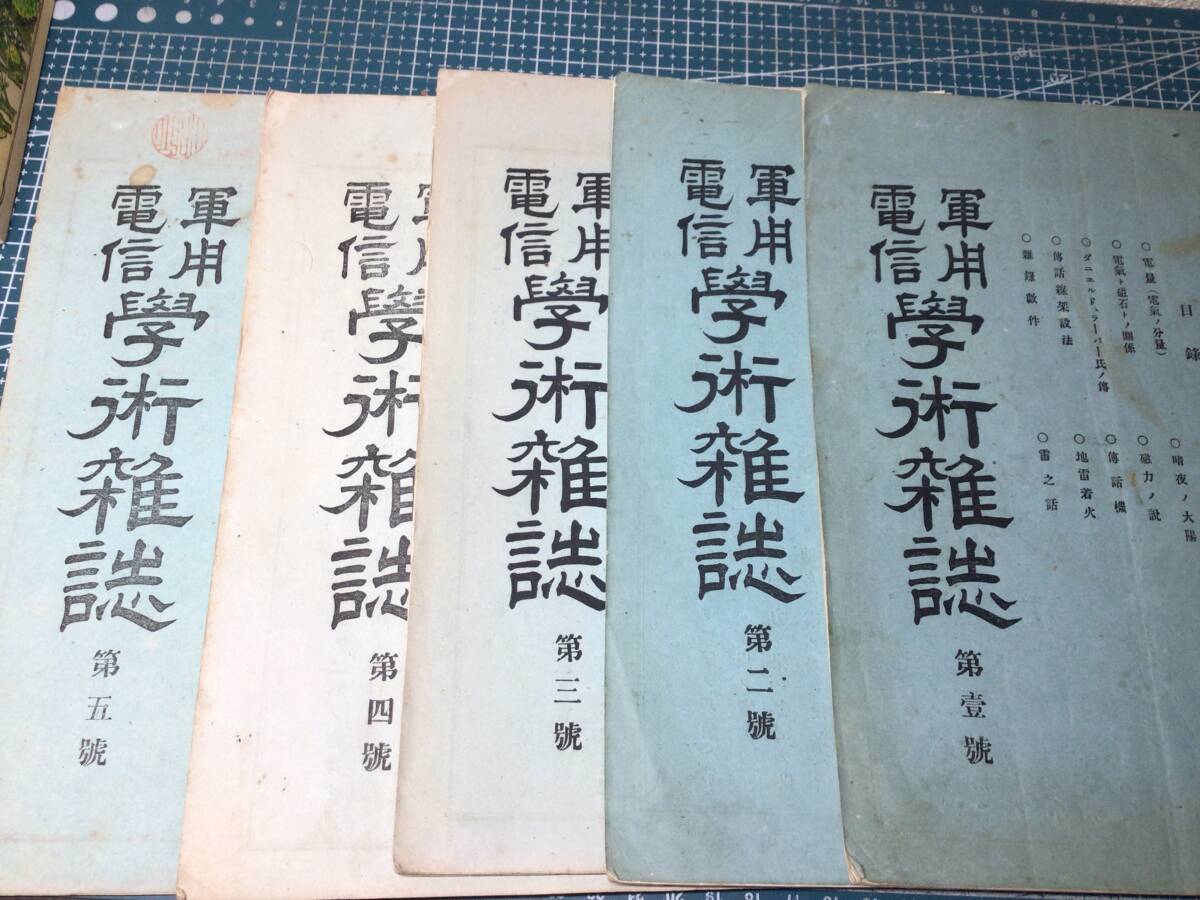 目錄
○電量(電氣ノ分量)
○電氣ト磁石トノ關係
○ダニエルド、ラーバー氏ノ傳
○傳話線架設法
○雜錄數件
○晴夜ノ太陽
○磁力ノ說
○傳話機
○地雷着火
○雷之話
軍用
電信
學術雜誌
第壹號
軍用
電信
學術雜誌
第二號
軍用
電信
學術雜誌
第三號
軍用
電信
學術雜誌
第四號
軍用
電信
學術雜誌
第五號